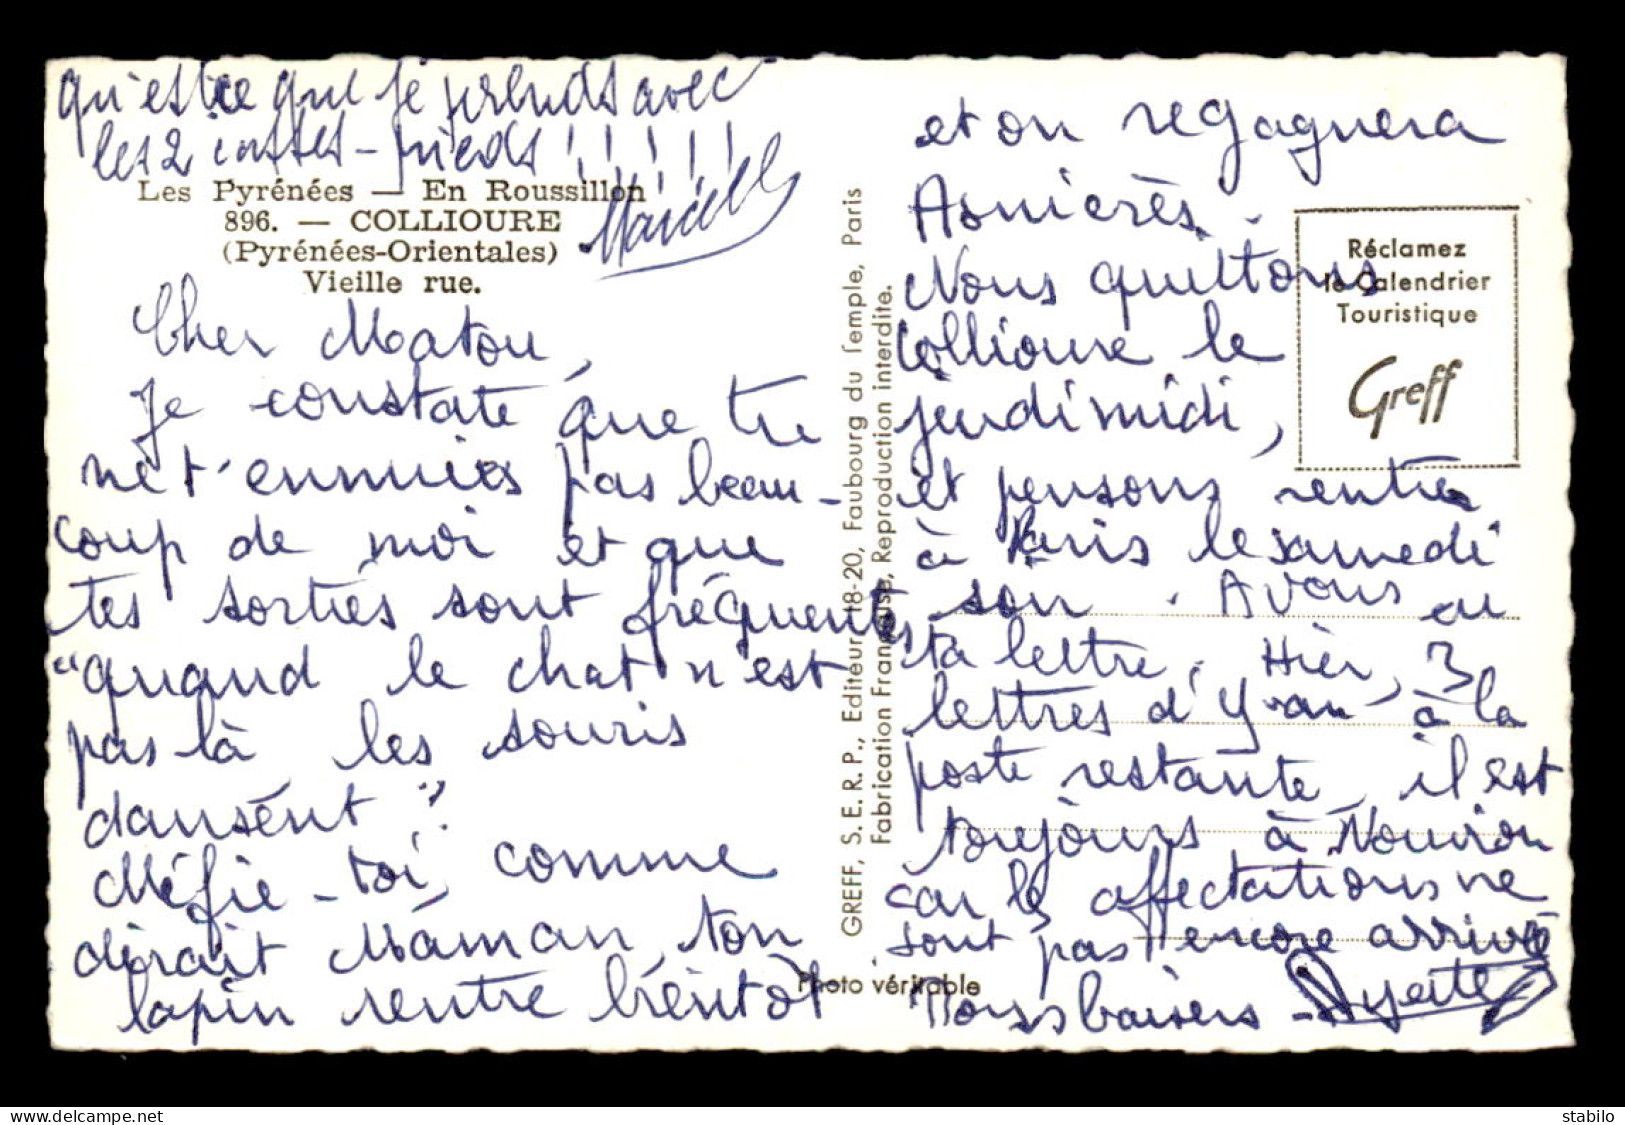 qu'est ce que je prends avec
les 2 casses-pieds !!!!!!
Marcel
Les Pyrénées — En Roussillon
896. — COLLIOURE
(Pyrénées-Orientales)
Vieille rue.
Cher Matou,
Je constate que tu
ne t'ennuies pas beau-
coup de moi et que
tes sorties sont fréquentes
"quand le chat n'est
pas là les souris
dansent".
Méfie-toi, comme
dirait Maman, ton
lapin rentre bientôt
GREFF, S.E.R.P., Editeur, 18-20, Faubourg du Temple, Paris
Fabrication Française, Reproduction interdite.
Photo véritable
et on regagnera
Asnières.
Nous quittons
Collioure le
jeudi midi,
et pensons rentrer
à Paris le samedi
soir. Avons eu
ta lettre. Hier, 3
lettres d'Yvan à la
poste restante, il est
toujours à Nouvion
car les affectations ne
sont pas encore arrivées
Gros baisers -
Réclamez
le Calendrier
Touristique
Greff
stabilo